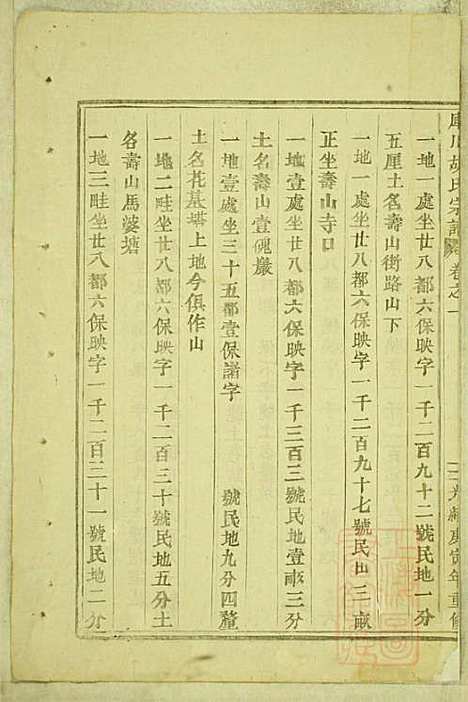 胡氏宗譜 卷之一
光緒庚寅年重修
一地一處坐廿八都六保映字一千二百九十二號民地一分
五厘土名壽山街路山下
一地一處坐廿八都六保映字一千二百九十七號民山三畝
正坐壽山寺口
一地壹處坐廿八都六保映字一千三百三號民地壹畝三分
土名壽山壹磈巖
一地壹處坐三十五都壹保諸字 號民地九分四釐
土名花墓塔上地今俱作山
一地二畦坐廿八都六保映字一千二百三十號民地五分土
名壽山馬婆塘
一地三畦坐廿八都六保映字一千二百三十一號民地二分